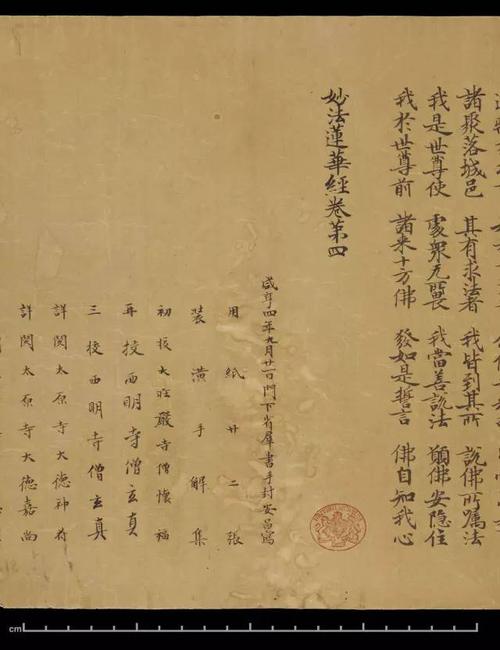 諸聚落城邑 其有求法者 我皆到其所 說佛所囑法
我是世尊使 處衆无所畏 我當善說法 願佛安隐住
我於世尊前 諸来十方佛 發如是誓言 佛自知我心
妙法蓮華經卷第四
咸亨四年九月廿一日門下省羣書手封安昌寫
用紙廿二張
装潢手解集
初校大莊嚴寺僧懷福
再校西明寺僧玄真
三校西明寺僧玄真
詳閱太原寺大德神苻
詳閱太原寺大德嘉尚
cm